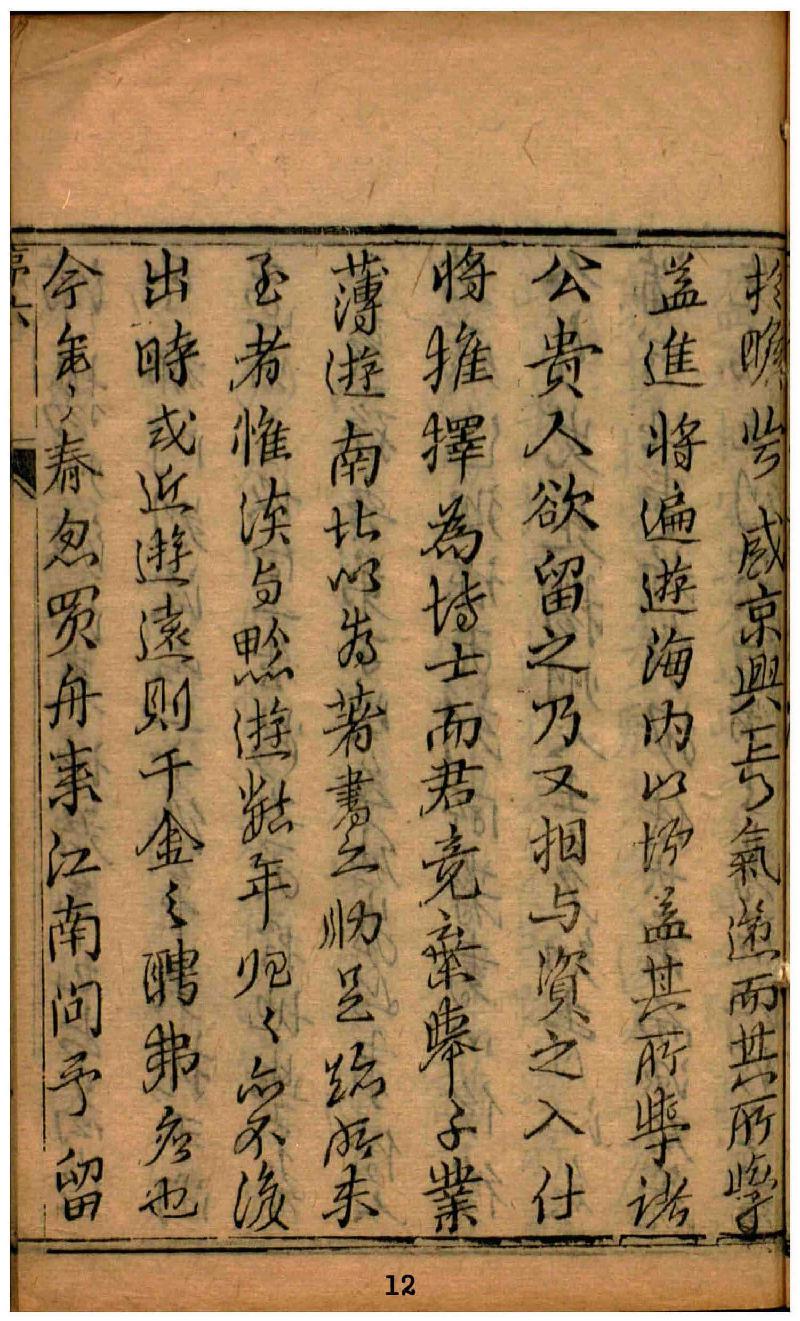 於瞻 京興焉氣遂而其所學
益進將遍遊海内以增益其所學諸
公貴人欲留之乃又相与資之入仕
將推擇為博士而君竟棄舉子業
薄遊南北以為著書之助足跡所未
至者惟滇与黔遊數年归々亦不復
出時或近遊遠則千金之聘弗应也
今年々春忽買舟来江南问予留
序六
12